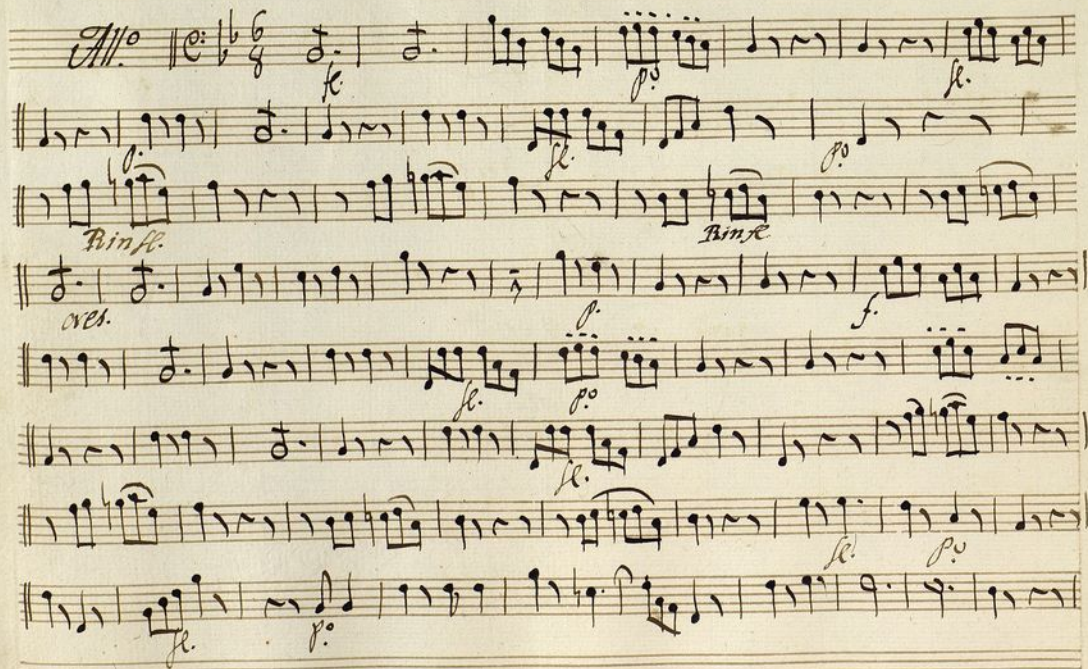 All.o 6 8
fe. p.o fe.
p. fe. p.o
Rinfe. Rinfe
cres. p. f.
fe. p.o
fe.
fe. p.o
fe. p.o